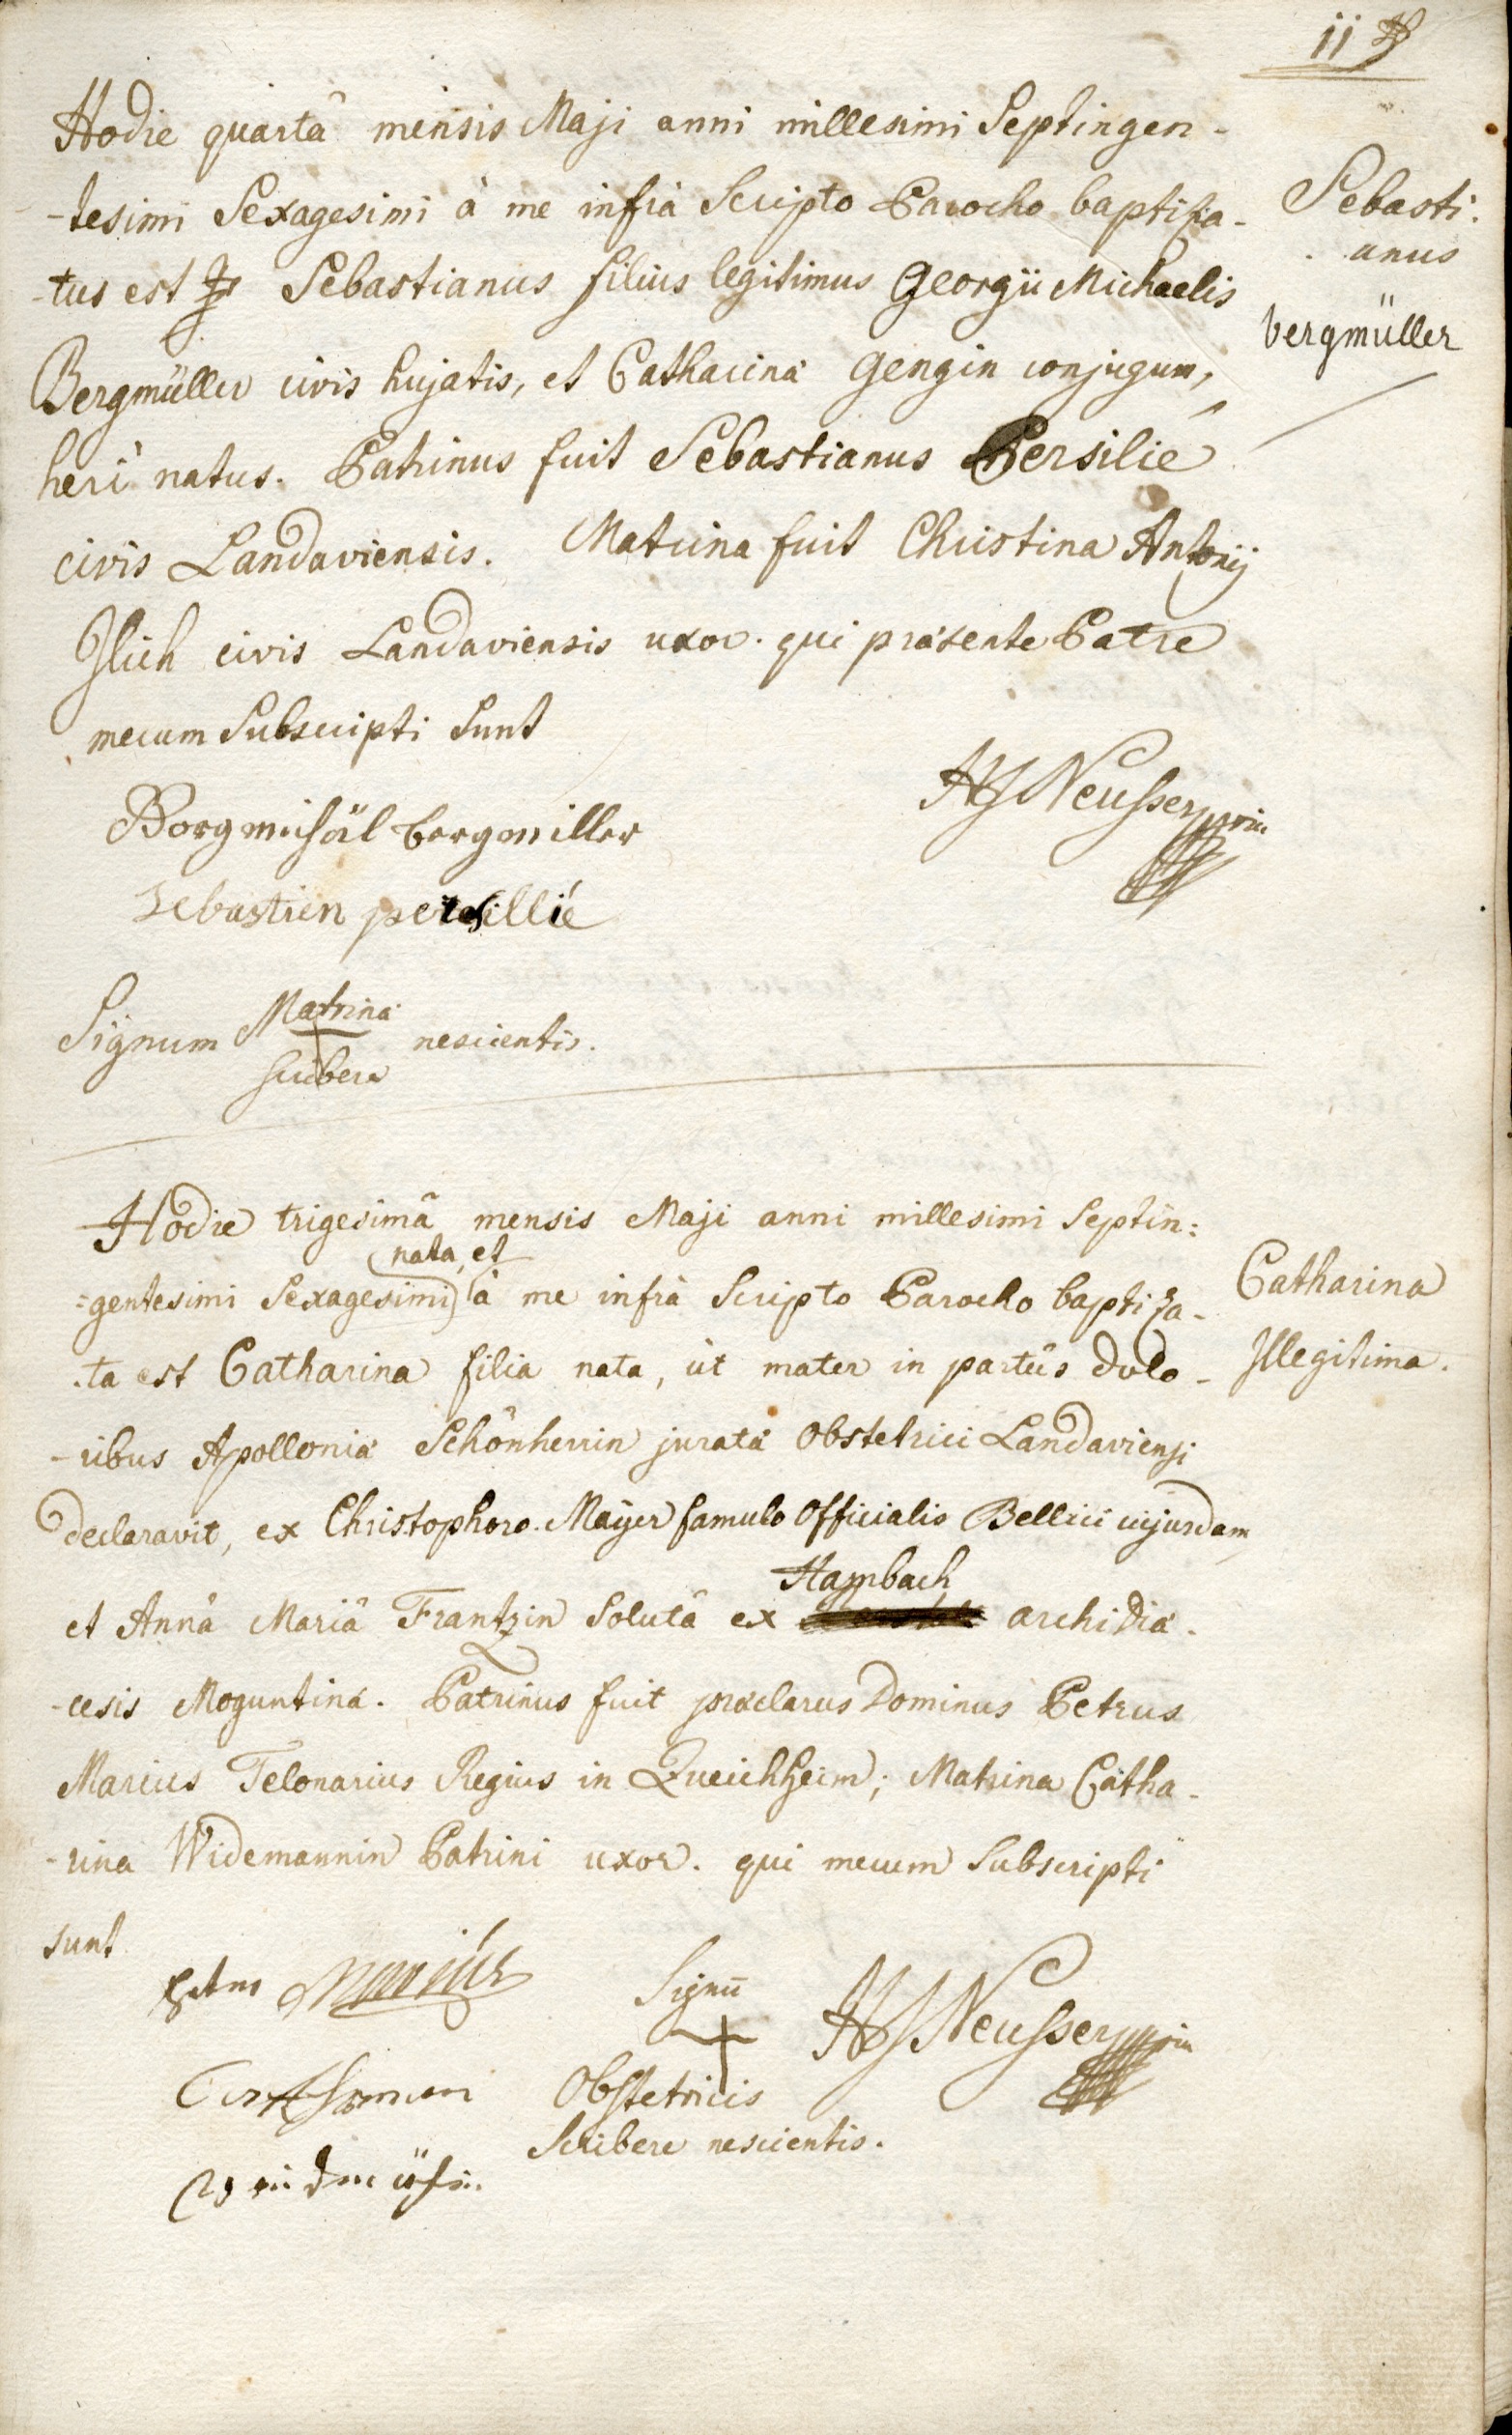 Hodie quartâ mensis Maji anni millesimi Septingen-
-tesimi Sexagesimi à me infrà Scripto Parocho baptiza-
-tus est Sebastianus filius legitimus Georgii Michaelis
Bergmüller civis hujatis, et Catharinâ Gengin conjugum,
heri natus. Patrinus fuit Sebastianus Persilié
civis Landaviensis. Matrina fuit Christina Antonij
Jlich civis Landaviensis uxor. qui præsente Patre
mecum Subscripti Sunt
Sebasti.
anus
bergmüller
HJ Neusser
bergmiller
Sebastien persillié
Signum Matrinæ nescientis.
scribere
Hodie trigesimâ mensis Maji anni millesimi Septin:
nata, et
=gentesimi Sexagesimi à me infrà Scripto Parocho baptiza-
-ta est Catharina filia nata, ùt mater in partûs dolo-
-ribus Apolloniæ Schönherrin juratæ Obstetrici Landaviensi
declaravit, ex Christophoro Mayer famulo Officialis Bellici cujusdam
Hambach
et Annâ Mariâ Frantzin Solutâ ex archidiæ-
-cesis Moguntinæ. Patrinus fuit præclarus Dominus Petrus
Marius Telonarius Regius in Queichheim; Matrina Catha-
-rina Widemannin Patrini uxor. qui mecum Subscripti
sunt
Catharina
Jllegitima.
Petrus Marius
Signū
Obstetricis
Scribere nescientis.
HJ Neusser